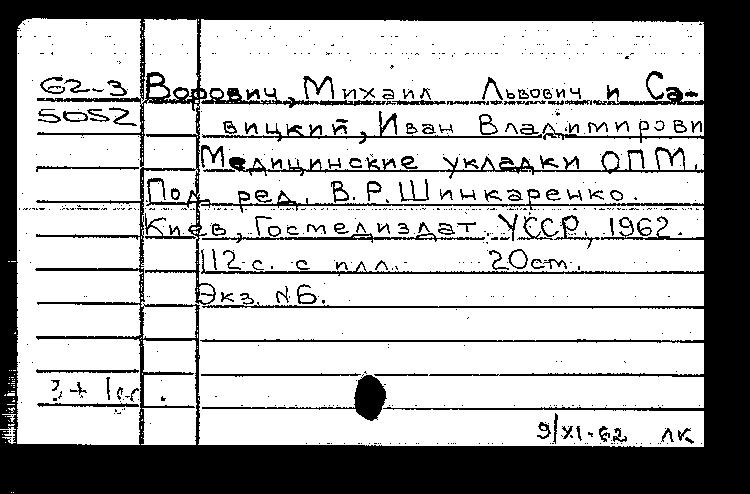 62-3 Ворович, Михаил Львович и Са-
5052 вицкий, Иван Владимирови
Медицинские укладки ОПМ.
Под ред. В.Р. Шинкаренко.
Киев, Гостмедиздат УССР, 1962.
112 с. с илл. 20 cm.
Экз. NБ.
3+
9/XI-62 ЛК